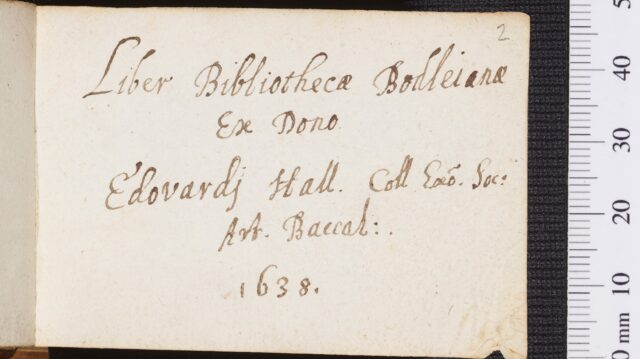 2
Liber Bibliothecæ Bodleianæ
Ex Dono
Edovardj Hall. Coll Exō. Soc:
Art. Baccal:.
1638.
50
40
30
20
10
0 mm